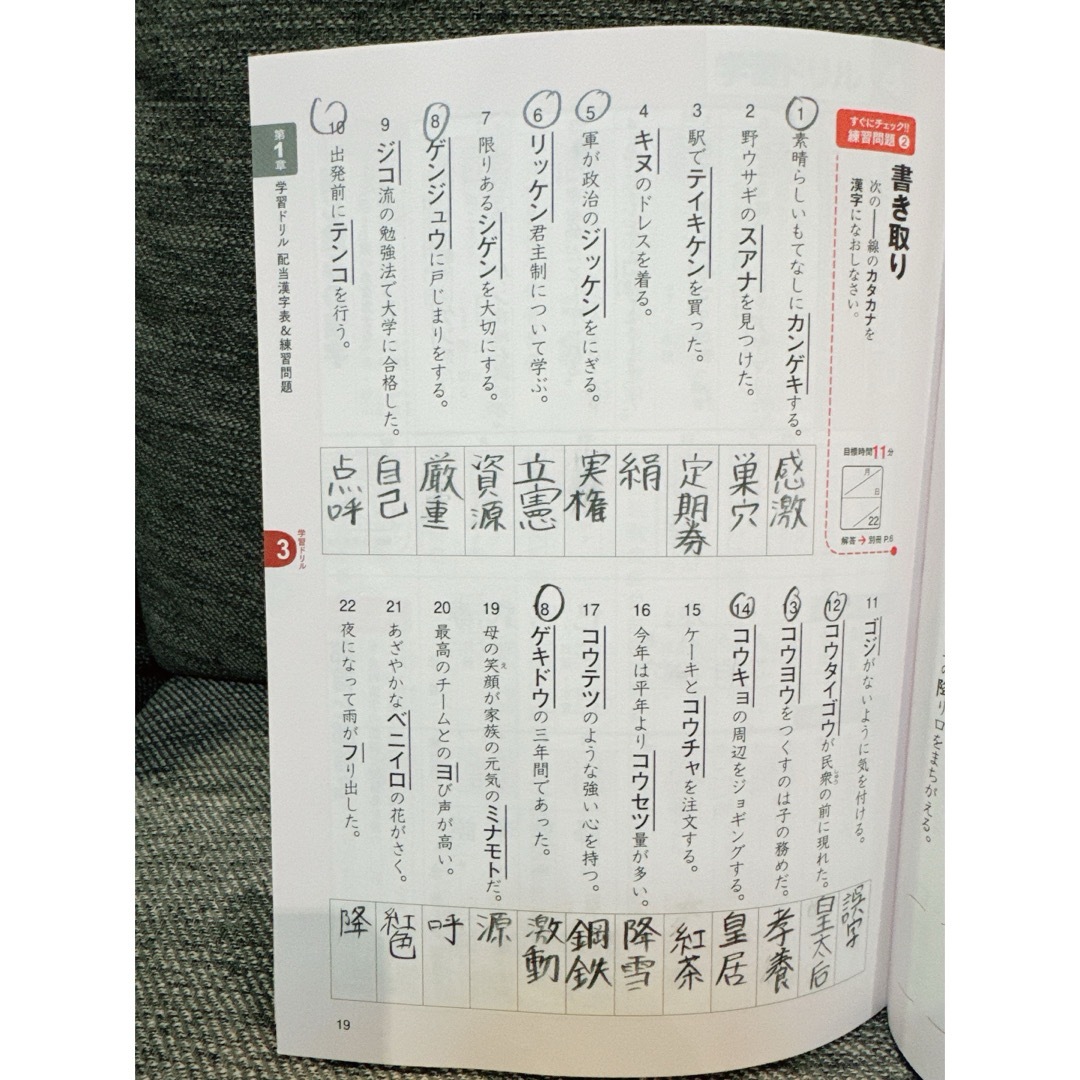 すぐにチェック!!
練習問題❷
書き取り
次の――線のカタカナを
漢字になおしなさい。
目標時間11分
月
日
22
解答→別冊P.6
1 素晴らしいもてなしにカンゲキする。
感激
2 野ウサギのスアナを見つけた。
巣穴
3 駅でテイキケンを買った。
定期券
4 キヌのドレスを着る。
絹
5 軍が政治のジッケンをにぎる。
実権
6 リッケン君主制について学ぶ。
立憲
7 限りあるシゲンを大切にする。
資源
8 ゲンジュウに戸じまりをする。
厳重
9 ジコ流の勉強法で大学に合格した。
自己
10 出発前にテンコを行う。
点呼
11 ゴジがないように気を付ける。
誤字
12 コウタイゴウが民衆の前に現れた。
皇太后
13 コウヨウをつくすのは子の務めだ。
孝養
14 コウキョの周辺をジョギングする。
皇居
15 ケーキとコウチャを注文する。
紅茶
16 今年は平年よりコウセツ量が多い。
降雪
17 コウテツのような強い心を持つ。
鋼鉄
18 ゲキドウの三年間であった。
激動
19 母の笑顔が家族の元気のミナモトだ。
え
源
20 最高のチームとのヨび声が高い。
呼
21 あざやかなベニイロの花がさく。
紅色
22 夜になって雨がフり出した。
降
第1章
学習ドリル 配当漢字表&練習問題
3
学習ドリル
19
降り口をまちがえる。